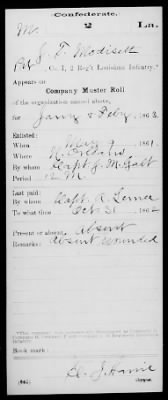 Confederate.
M. 2 La.
Pvt J. T. Modisett
Co. I, 2 Reg't Louisiana Infantry.
Appears on
Company Muster Roll
of the organization named above,
for Jany & Feby, 1863.
Enlisted:
When May, 1861.
Where N. Orleans
By whom Capt J. McGalt
Period 12 M.
Last paid:
By whom Capt
To what time Oct 31, 1862.
Present or absent Absent
Remarks: Absent wounded
Book mark:
(642) Copyist.